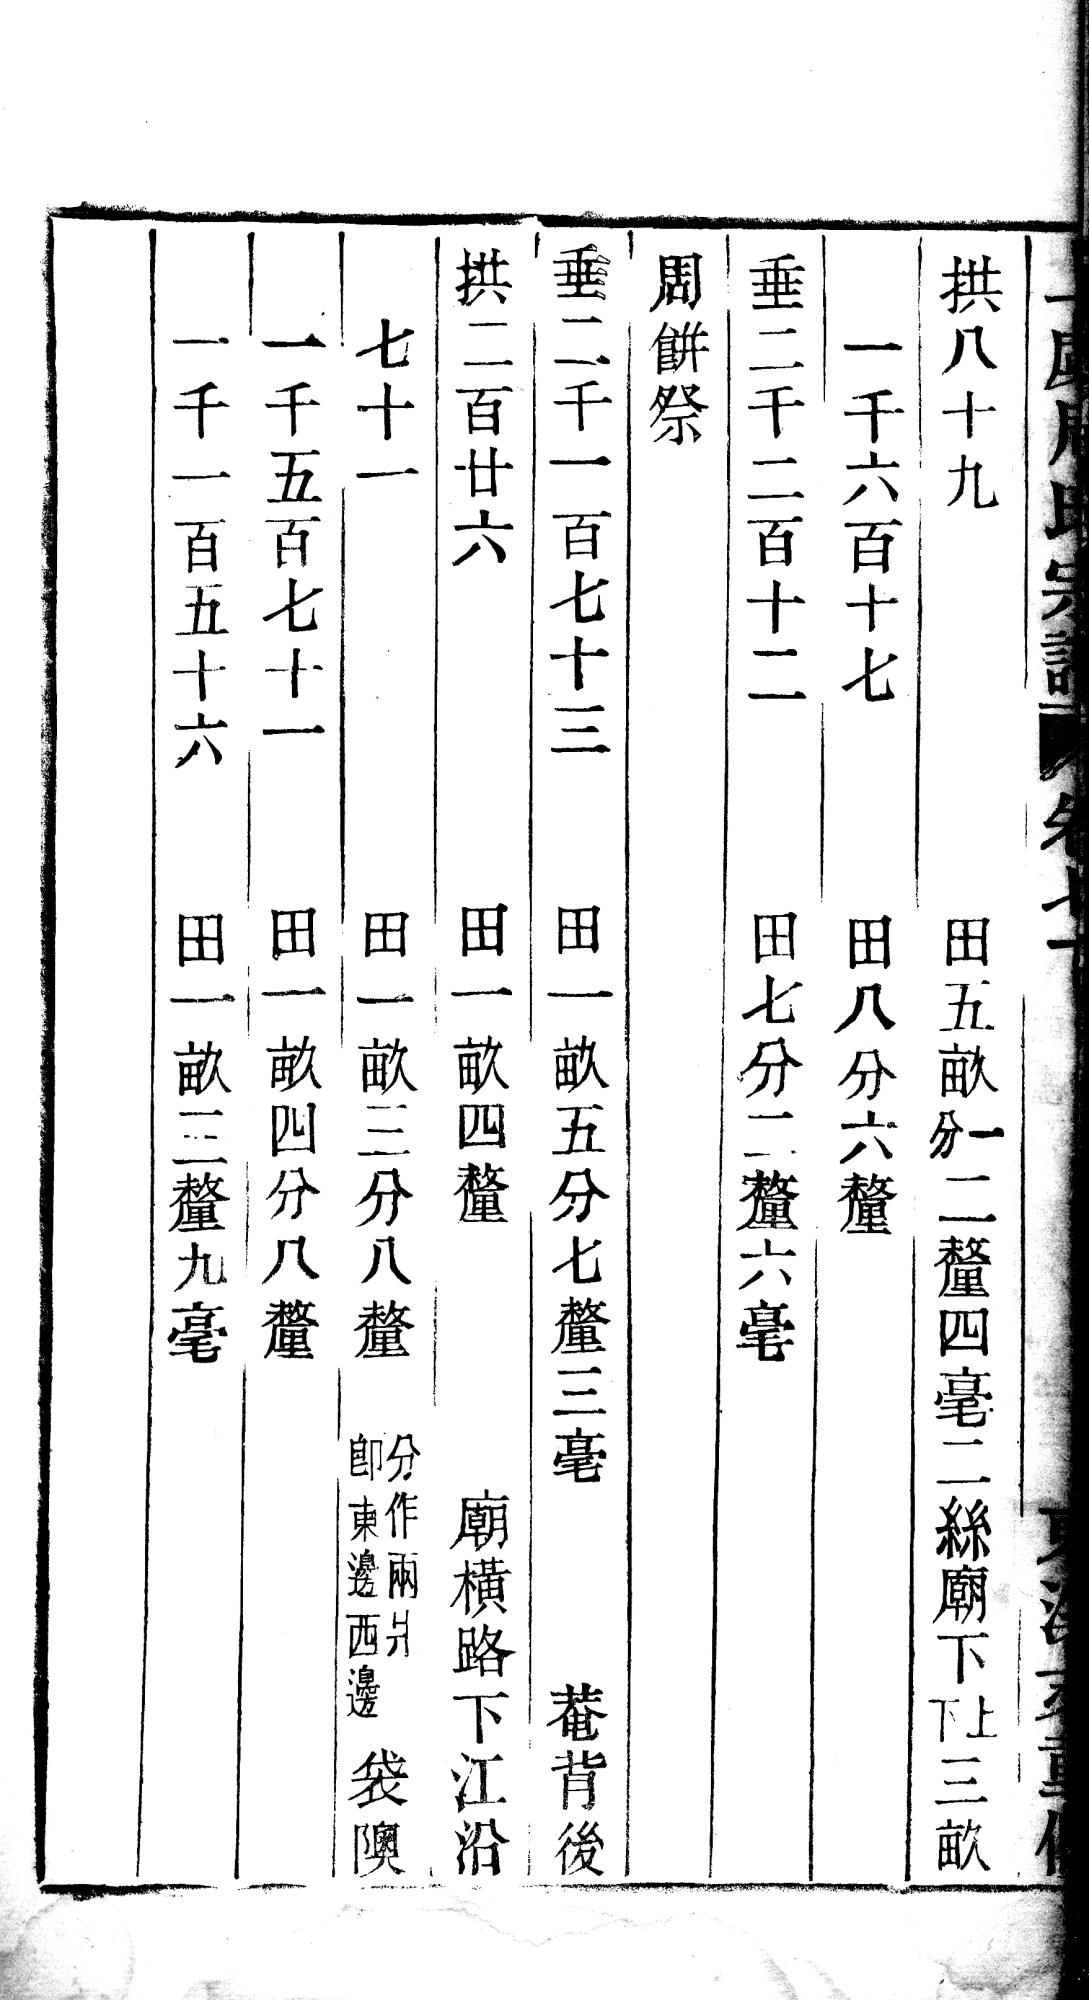 周氏宗譜 卷七十
拱八十九 田五畝一分二釐四毫二絲廟下上下三畝
一千六百十七 田八分六釐
垂二千二百十二 田七分二釐六毫
周餅祭
垂二千一百七十三 田一畝五分七釐三毫 菴背後
拱二百廿六 田一畝四釐 廟橫路下江沿
七十一 田一畝三分八釐 分作兩爿卽東邊西邊 袋隩
一千五百七十一 田一畝四分八釐
一千一百五十六 田一畝三釐九毫